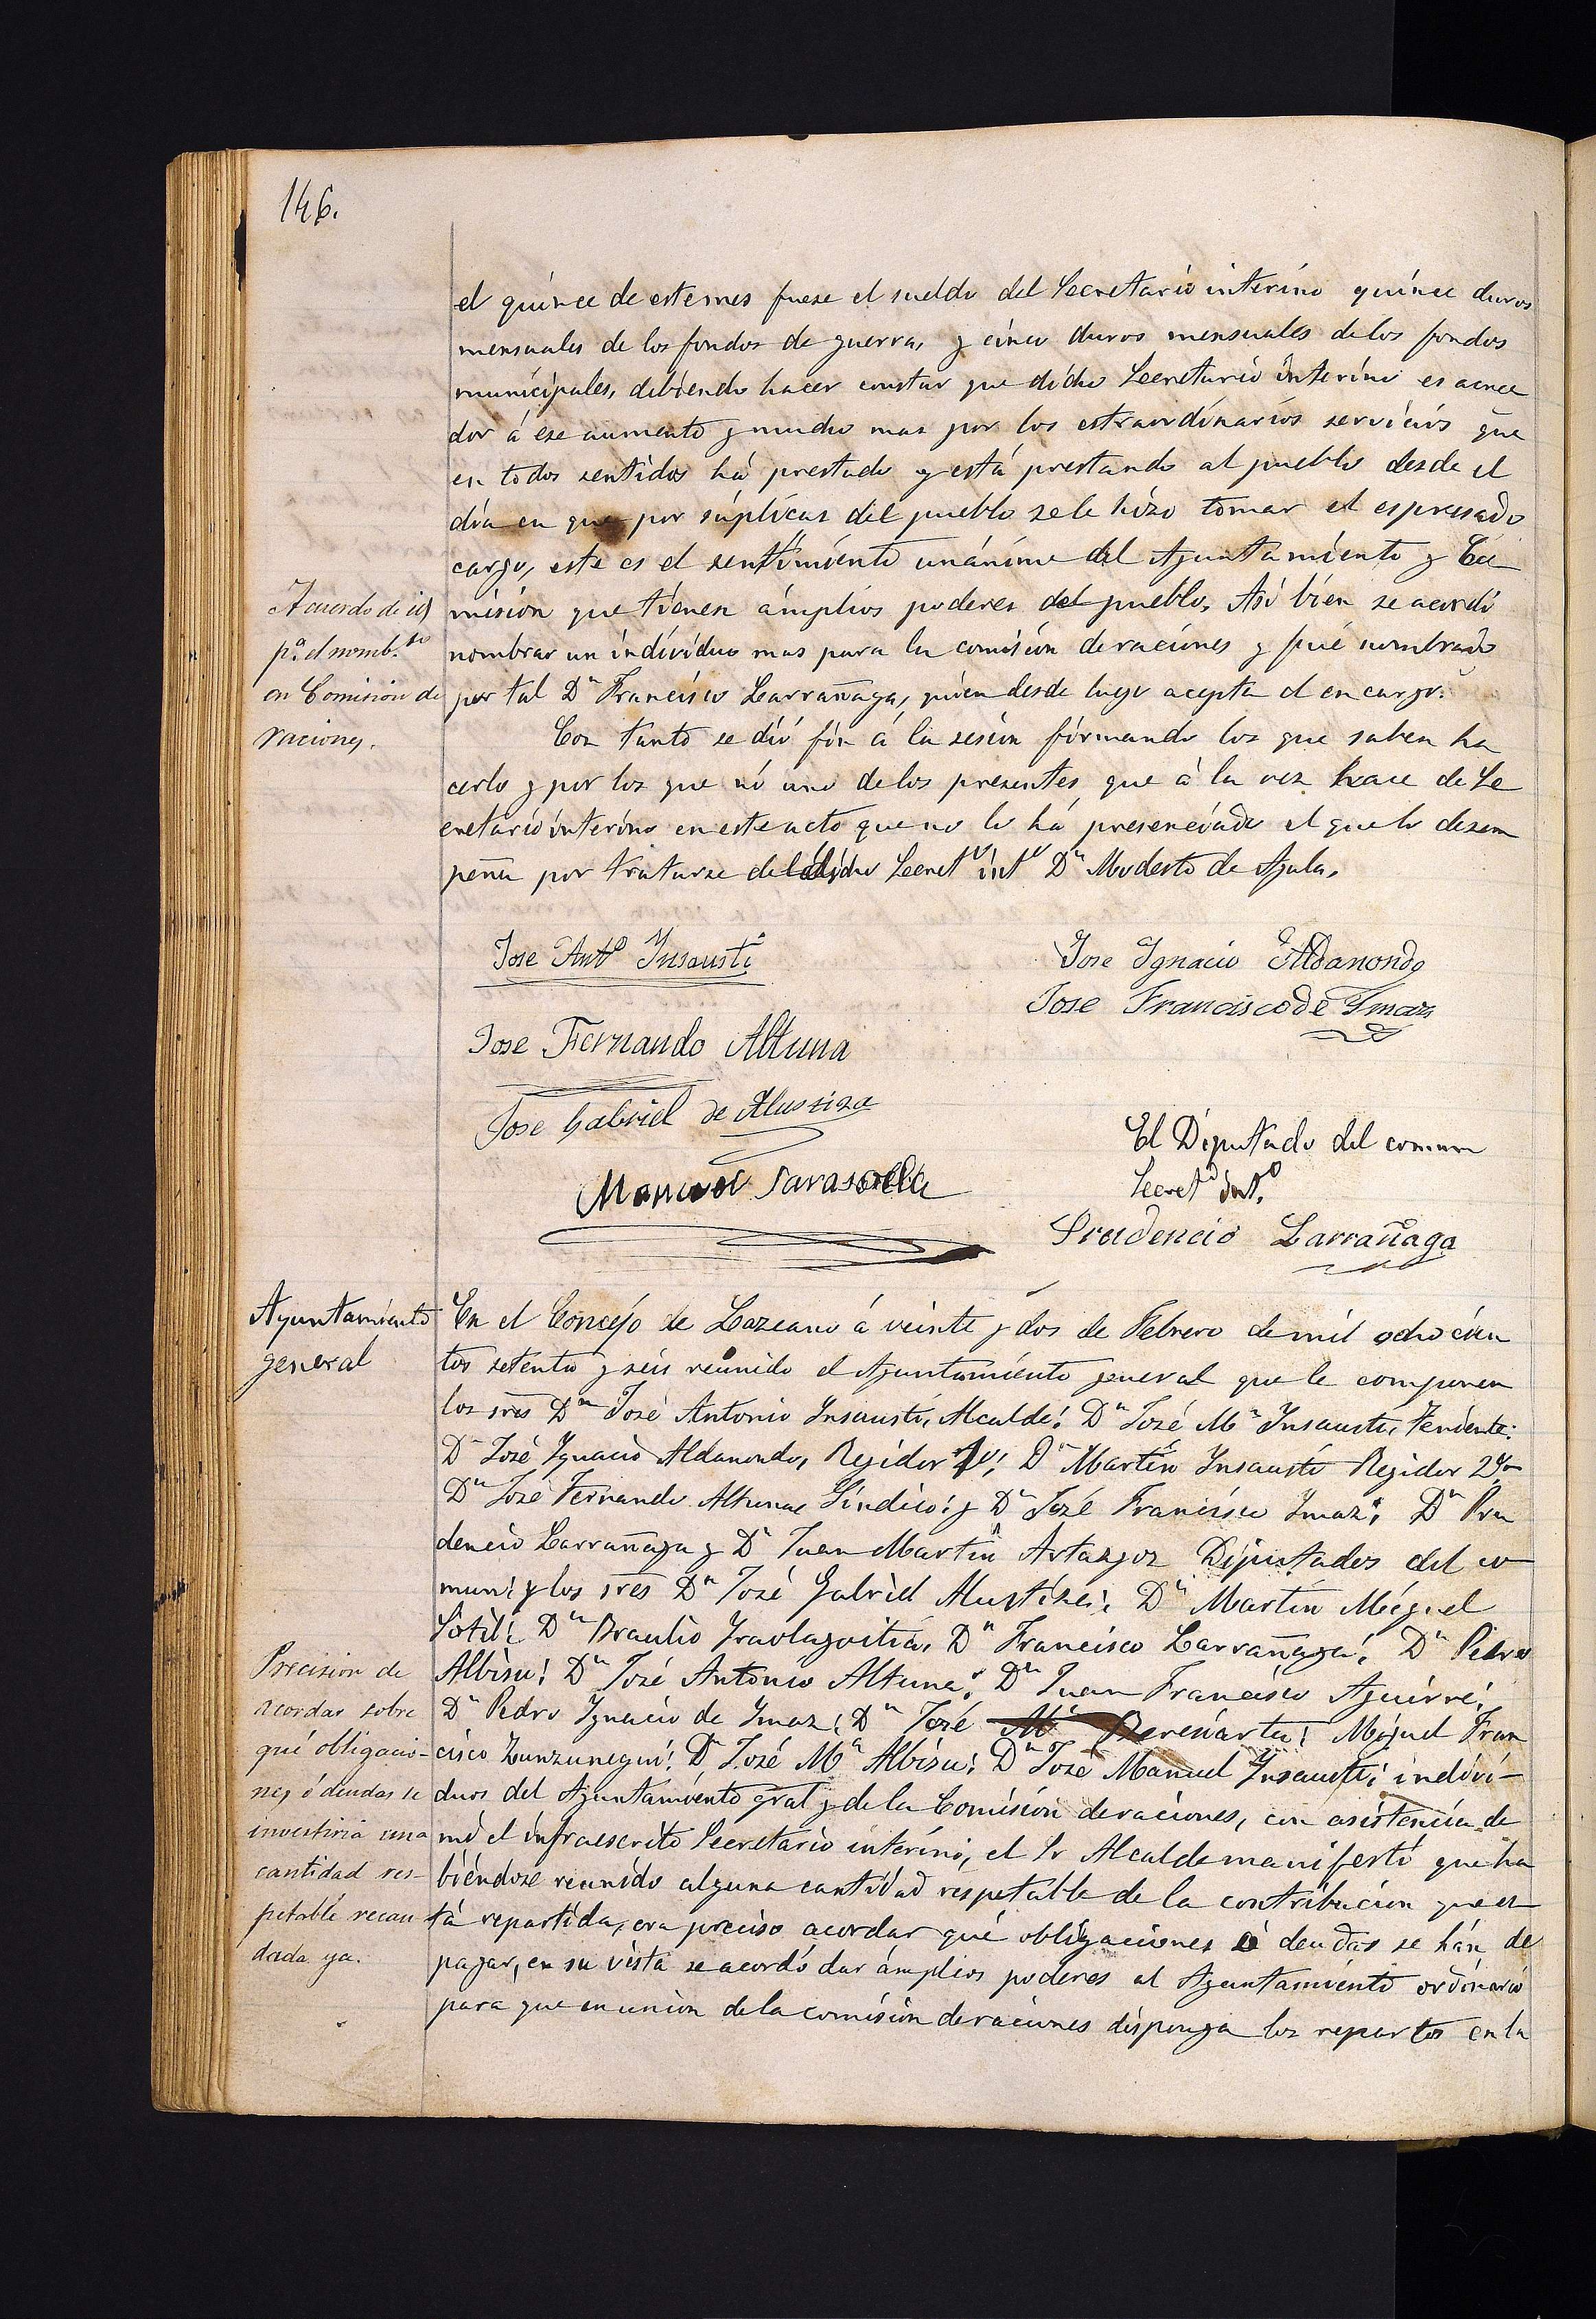 146.
el quince de este mes fuese el sueldo del Secretario interino quince duros
mensuales de los fondos de guerra, y cinco duros mensuales de los fondos
municipales, debiendo hacer constar que dicho Secretario interino es acree
dor á ese aumento y mucho mas por los estraordinarios servicios que
en todos sentidos há prestado y está prestando al pueblo desde el
día en que por súplicas del pueblo se le hizo tomar el espresado
cargo, este es el sentimiento unánime del Ayuntamiento y Co
Acuerdo de id
misión que tienen ámplios poderes del pueblo, Así bien se acordó
pª. el nomb.to
nombrar un individuo mas para la comisión de raciones y fué nombrado
en Comision de
por tal Dn Francisco Larrañaga, quien desde luego acepta el encargo.
raciones.
Con tanto se dió fin á la sesion firmando los que saben ha
cerlo y por los que nó uno de los presentes que à la vez hace de Se
cretario interino en este acto que no lo há presenciado el que lo desem
peña por tratarse del dicho Secreto into Dn Modesto de Ayala,
Jose Anto Insausti
Jose Ignacio Aldanondo
Jose Francisco de Imaz
Jose Fernando Altuna
Jose Gabriel de Alustiza
El Diputado del comun
Manuel Sarasola
Secreto Int.o
Prudencio Larrañaga
Ayuntamiento
general
En el Concejo de Lazcano á veinte y dos de Febrero de mil ochocien
tos setenta y seis reunido el Ayuntamiento general que le componen
los sres Dn José Antonio Insausti, Alcalde: Dn José Ma Insausti, Teniente:
Dn José Ignacio Aldanondo, Regidor 1o: Dn Martín Insausti Regidor 2do
Dn José Fernando Altuna Síndico: y Dn José Francisco Imaz: Dn Pru
dencio Larrañaga y Dn Juan Martín Artazcoz Diputados del co
mun: y los sres Dn José Gabriel Alustiza: Dn Martín Miguel
Sotil: Dn Braulio Iraolagoitia, Dn Francisco Larrañaga: Dn Pedro
Precision de
Albisu: Dn José Antonio Altuna: Dn Juan Francisco Aguirre:
acordar sobre
Dn Pedro Ignacio de Imaz: Dn José Ma Bereciartu: Miguel Fran
qué obligacio-
cisco Zunzunegui: Dn José Ma Albisu: Dn José Manuel Insausti: indivi-
nes ó deudas se
duos del Ayuntamiento gral y de la Comisión de raciones, con asistencia de
investiria una
mi el infraescrito Secretario interino, el Sr Alcalde manifestó que ha
cantidad res-
biéndose reunido alguna cantidad respetable de la contribucion que es
petable recau
tá repartida, era preciso acordar qué obligaciones ó deudas se hán de
dada ya.
pagar, en su vista se acordó dar ámplios poderes al Ayuntamiento ordinario
para que en union de la comisión de raciones disponga los repartos en la